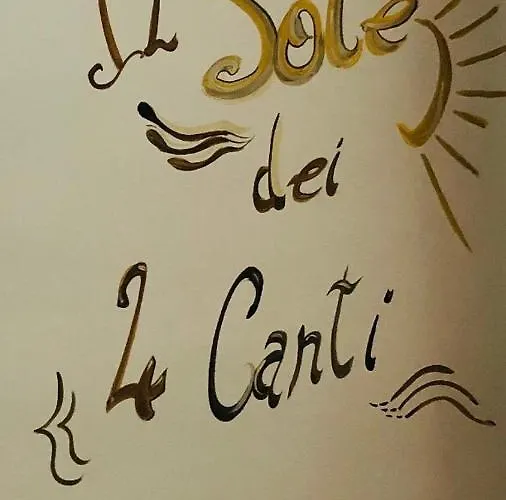 Il Sole
dei
4 Canti